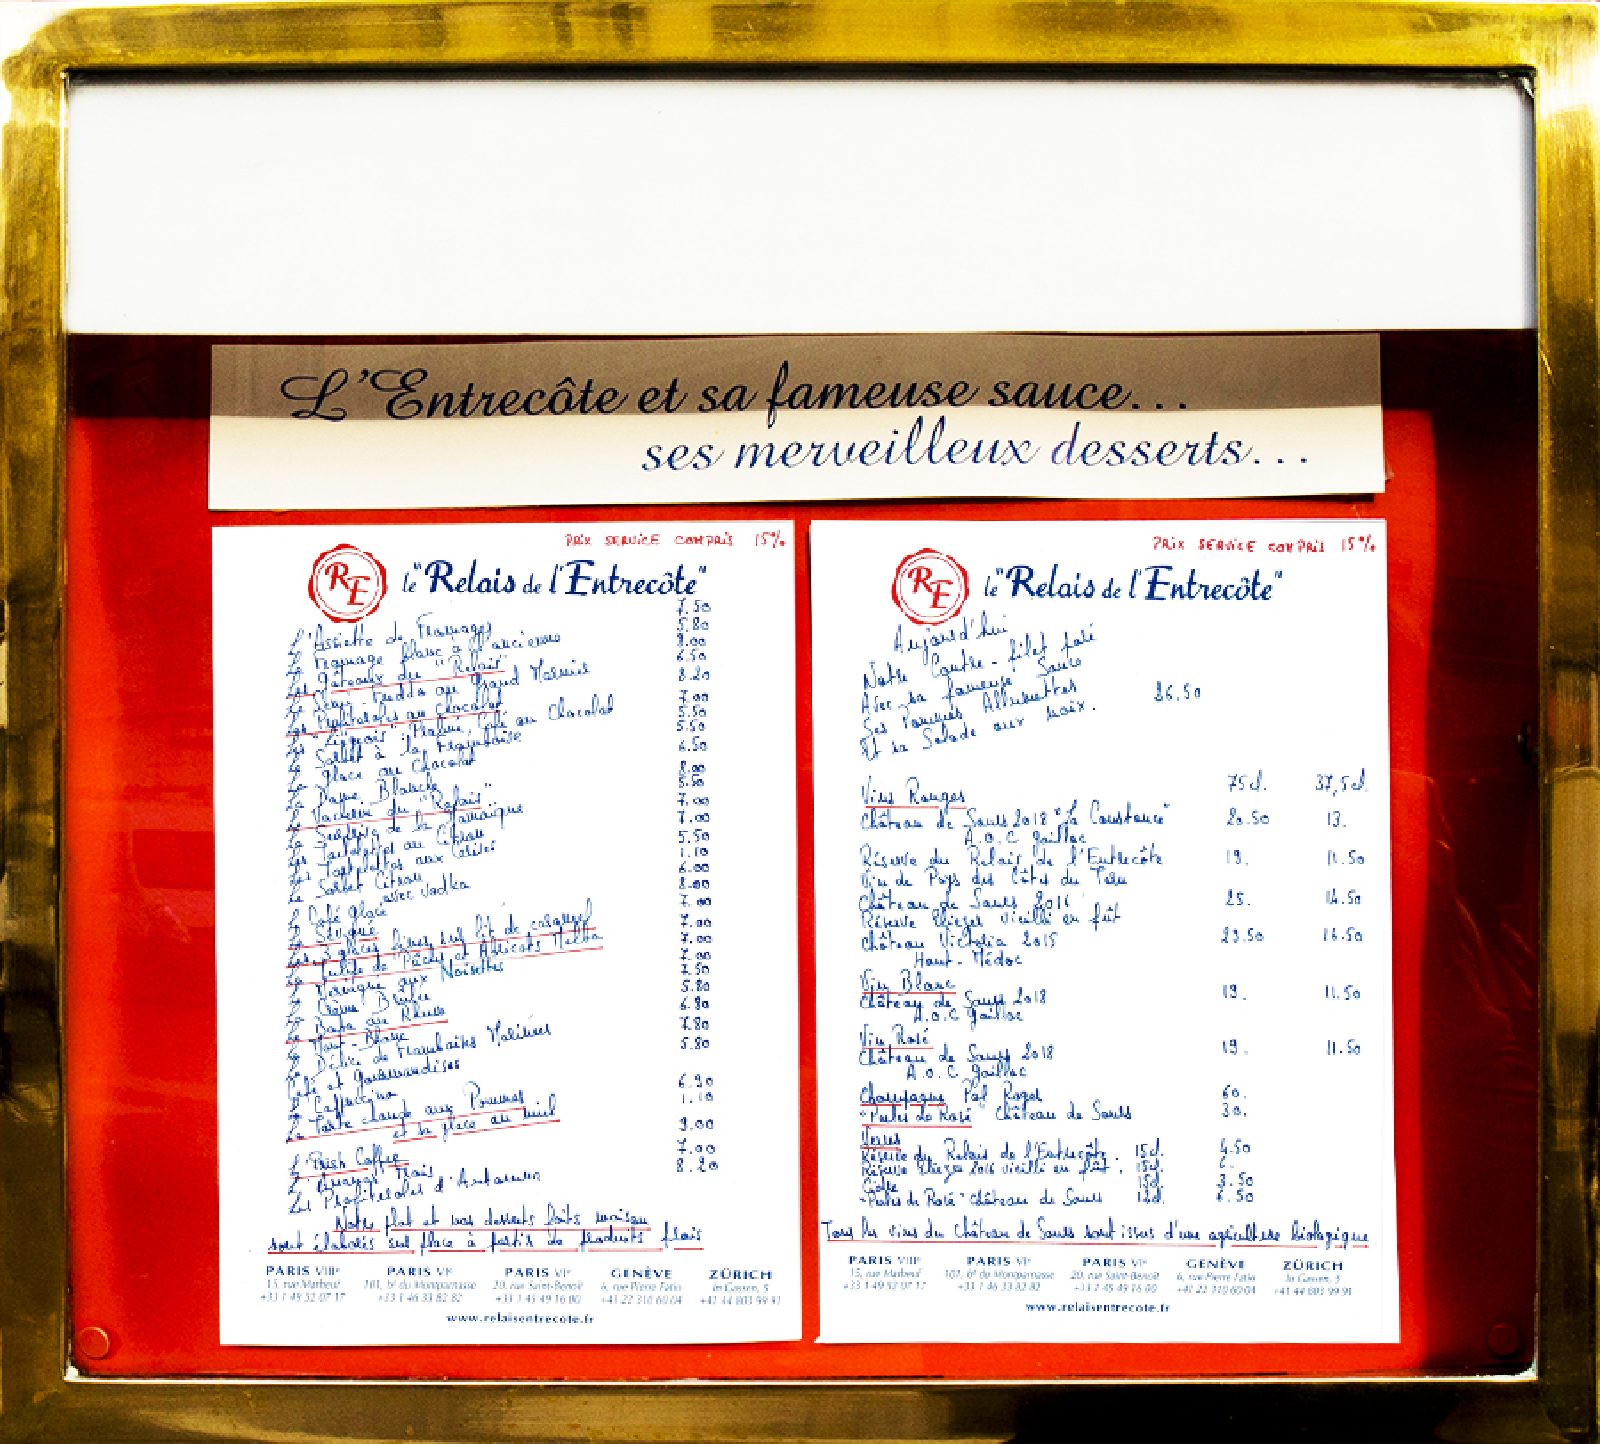 L'Entrecôte et sa fameuse sauce...
ses merveilleux desserts...
PRIX SERVICE COMPRIS 15%
RE le "Relais de l'Entrecôte"
L'Assiette de Fromages 7.50
Le Fromage blanc à l'ancienne 5.80
Les Gâteaux du "Relais" 8.00
Le au Grand Marnier 6.50
Les Profiteroles au Chocolat 8.20
Les "Liégeois" Praliné, Café ou Chocolat 7.00
Le Sorbet à la Framboise 5.50
La Glace au Chocolat 5.50
La Dame Blanche 6.50
Le Vacherin du "Relais" 8.00
La de la Jamaïque 5.50
Les Tartelettes au Citron 7.00
Les Tartelettes aux 7.00
Le Sorbet Citron 5.50
avec Vodka 1.10
Le Café glacé 6.00
Le Sévigné 8.00
Les 3 glaces fines sur lit de caramel 7.00
La Tulipe de Pêches et Abricots Melba 7.00
La Meringue aux Noisettes 7.00
La Crème Brulée 7.00
Le Baba au Rhum 7.50
Le Mont-Blanc 5.80
Le Délice de Framboises Meringues 6.80
Café et Gourmandises 7.80
Le Cappuccino 5.80
La Tarte chaude aux Pommes 6.90
et sa glace au miel 1.10
L'Irish Coffee 9.00
L'Ananas Frais 7.00
Les Profiteroles d'Antamen 8.20
Notre plat et nos desserts faits maison
sont élaborés sur place à partir de produits frais
PARIS VIIIe PARIS VIe PARIS VIe GENÈVE ZÜRICH
15, rue Marbeuf 101, bd du Montparnasse 20, rue Saint-Benoît 6, rue Pierre Fatio In Gassen, 5
+33 1 49 52 07 17 +33 1 46 33 82 82 +33 1 45 49 16 00 +41 22 310 60 04 +41 44 803 99 91
www.relaisentrecote.fr
PRIX SERVICE COMPRIS 15%
RE le "Relais de l'Entrecôte"
Aujourd'hui
Notre Contre-filet paré
Avec sa fameuse Sauce
Ses Pommes Allumettes 26.50
Et sa Salade aux noix.
Vins Rouges 75cl. 37,5cl.
Château de Saurs 2018 "La Constance" 20.50 13.
A.O.C Gaillac
Réserve du Relais de l'Entrecôte 19. 11.50
Vin de Pays des Côtes du Tarn
Château de Saurs 2016 25. 14.50
Réserve Eliezer vieilli en fût
Château Victoria 2015 29.50 16.50
Haut-Médoc
Vin Blanc
Château de Saurs 2018 19. 11.50
A.O.C Gaillac
Vin Rosé
Château de Saurs 2018 19. 11.50
A.O.C Gaillac
Champagne Pol Roger 60.
"Perles de Rosé" Château de Saurs 30.
Verres
Réserve du Relais de l'Entrecôte. 15cl. 4.50
Réserve Eliezer 2016 vieilli en fût. 15cl. 6.
Cidre 15cl. 3.50
"Perles de Rosé" Château de Saurs 12cl. 6.50
Tous les vins du Château de Saurs sont issus d'une agriculture biologique
PARIS VIIIe PARIS VIe PARIS VIe GENÈVE ZÜRICH
15, rue Marbeuf 101, bd du Montparnasse 20, rue Saint-Benoît 6, rue Pierre Fatio In Gassen, 5
+33 1 49 52 07 17 +33 1 46 33 82 82 +33 1 45 49 16 00 +41 22 310 60 04 +41 44 803 99 91
www.relaisentrecote.fr